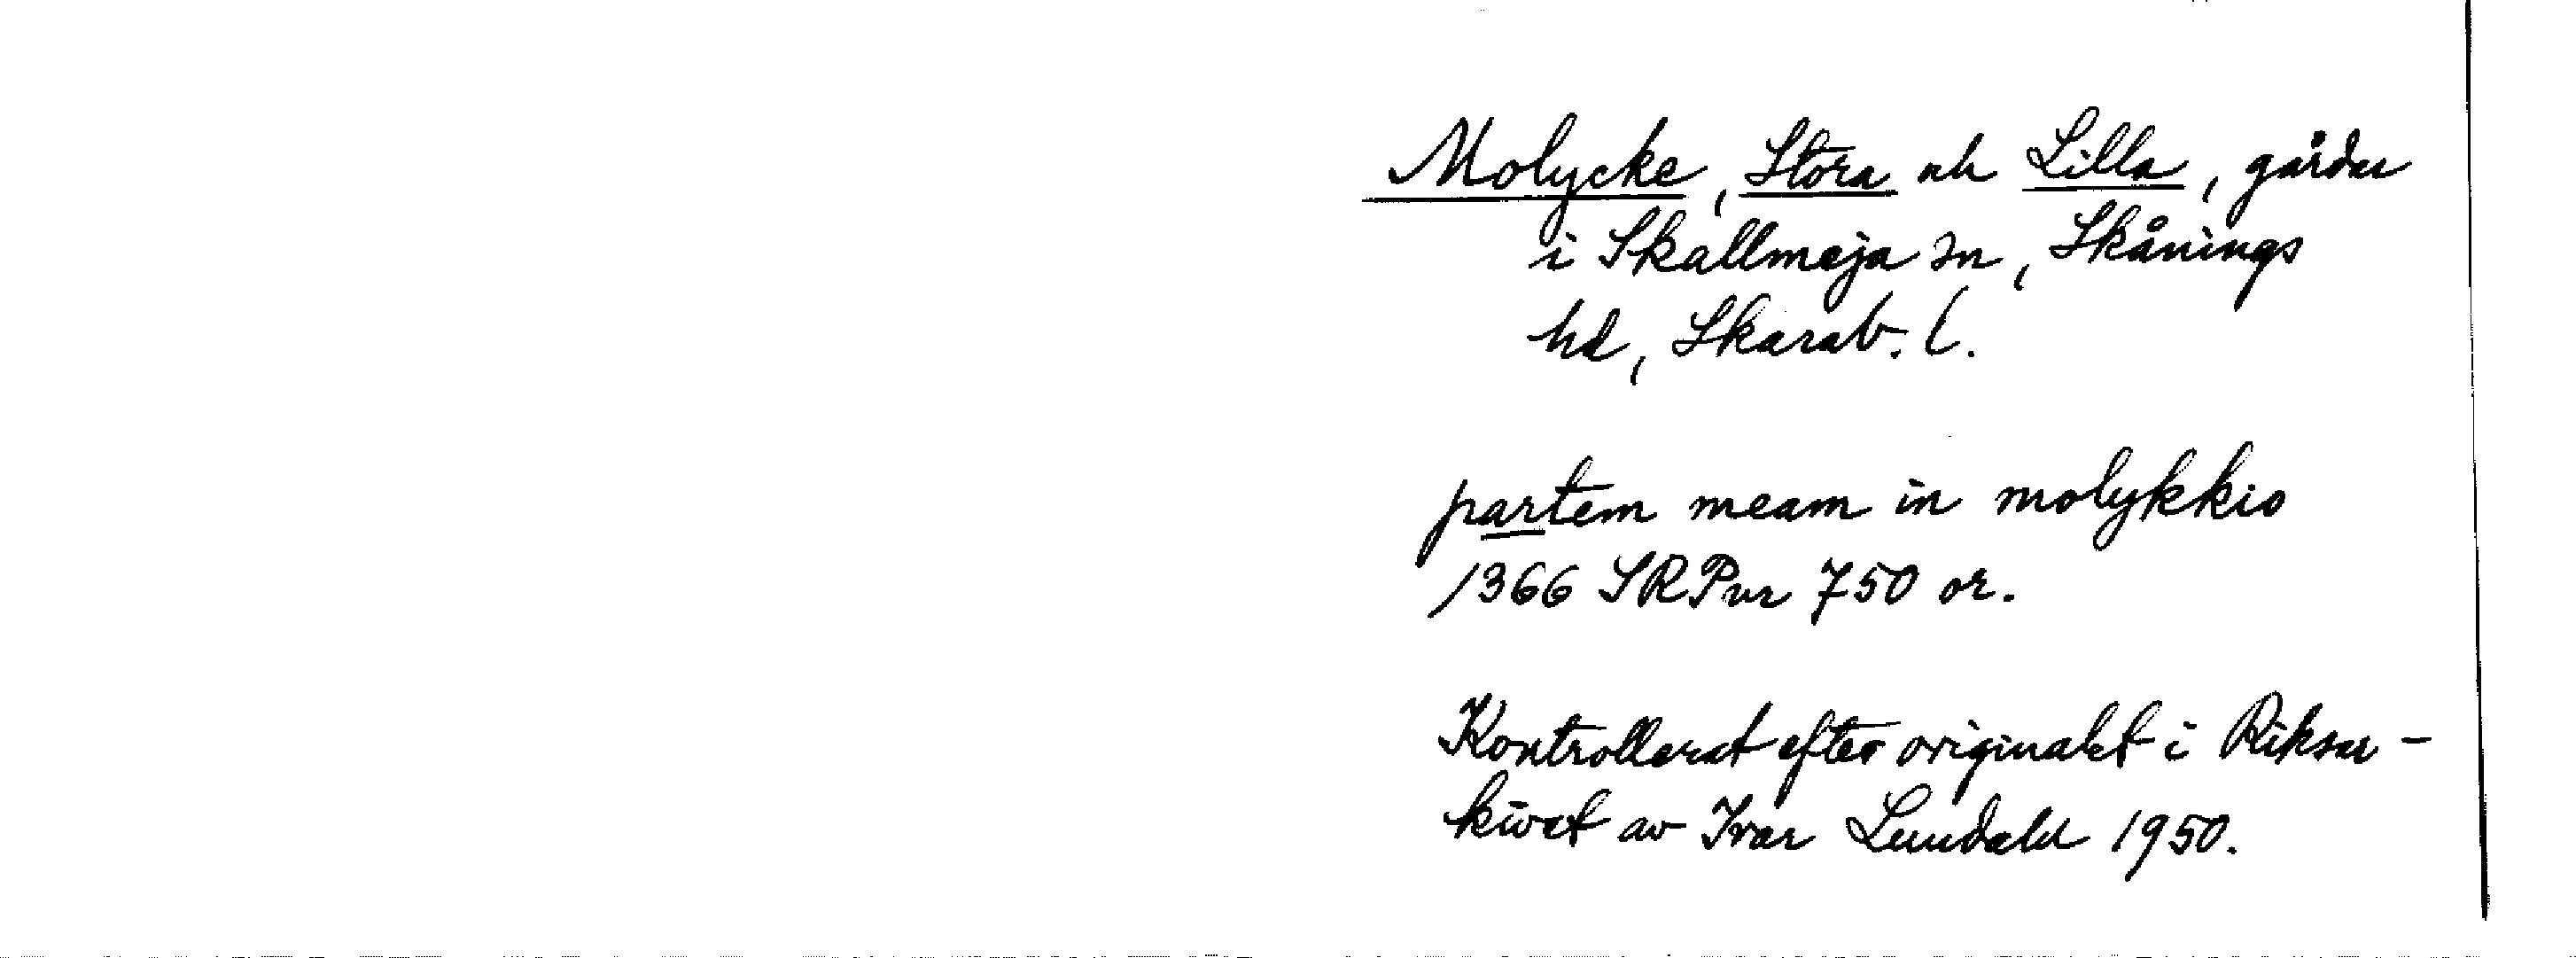 Molycke, Stora och Lilla, gårdar
i Skallmeja sn, Skånings
hd, Skarab. l.
partem meam in molykkio
1366 SRPnr 750 or.
Kontrollerat efter originalet i Riksar-
kivet av Ivar Lundahl 1950.